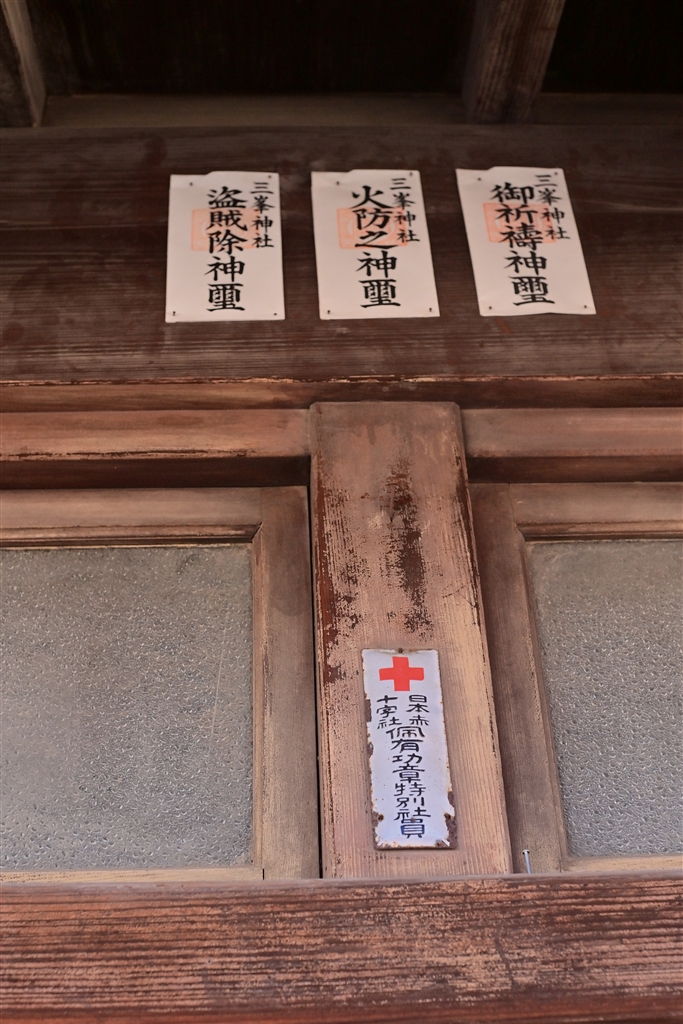 三峯神社
御祈禱神璽
三峯神社
火防之神璽
三峯神社
盗賊除神璽
日本赤
十字社
佩有功章特別社員